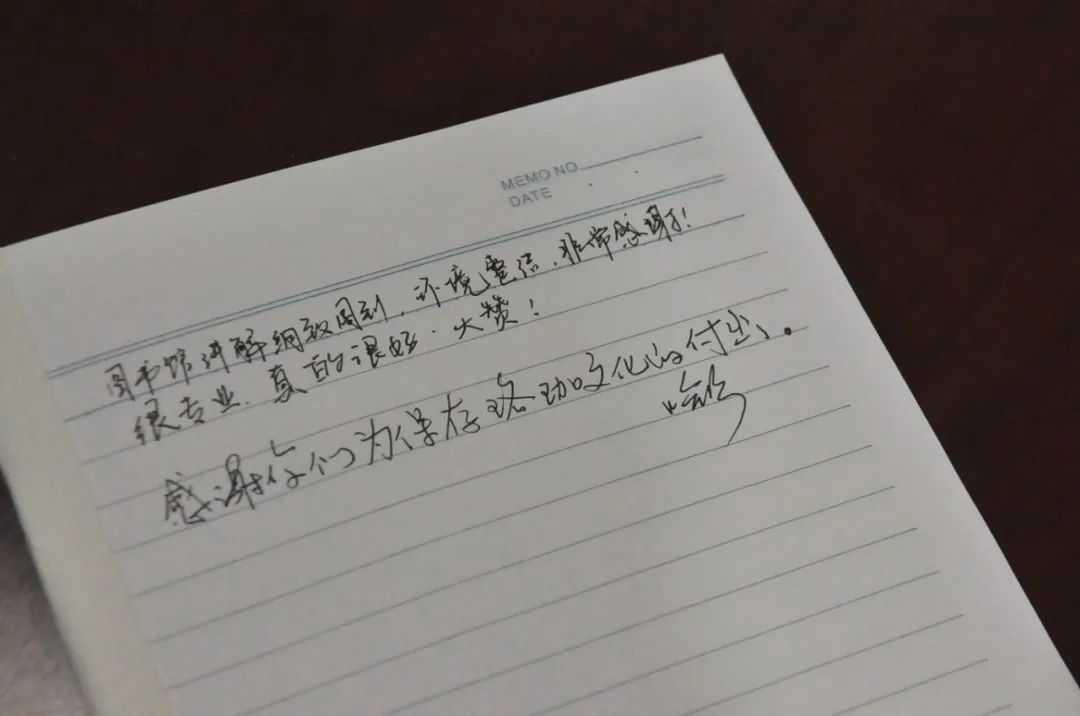 MEMO NO.
DATE
图书馆讲解细致周到，环境整洁，非常感谢！
很专业，真的很好，大赞！
感谢你们为保存珞珈文化的付出。